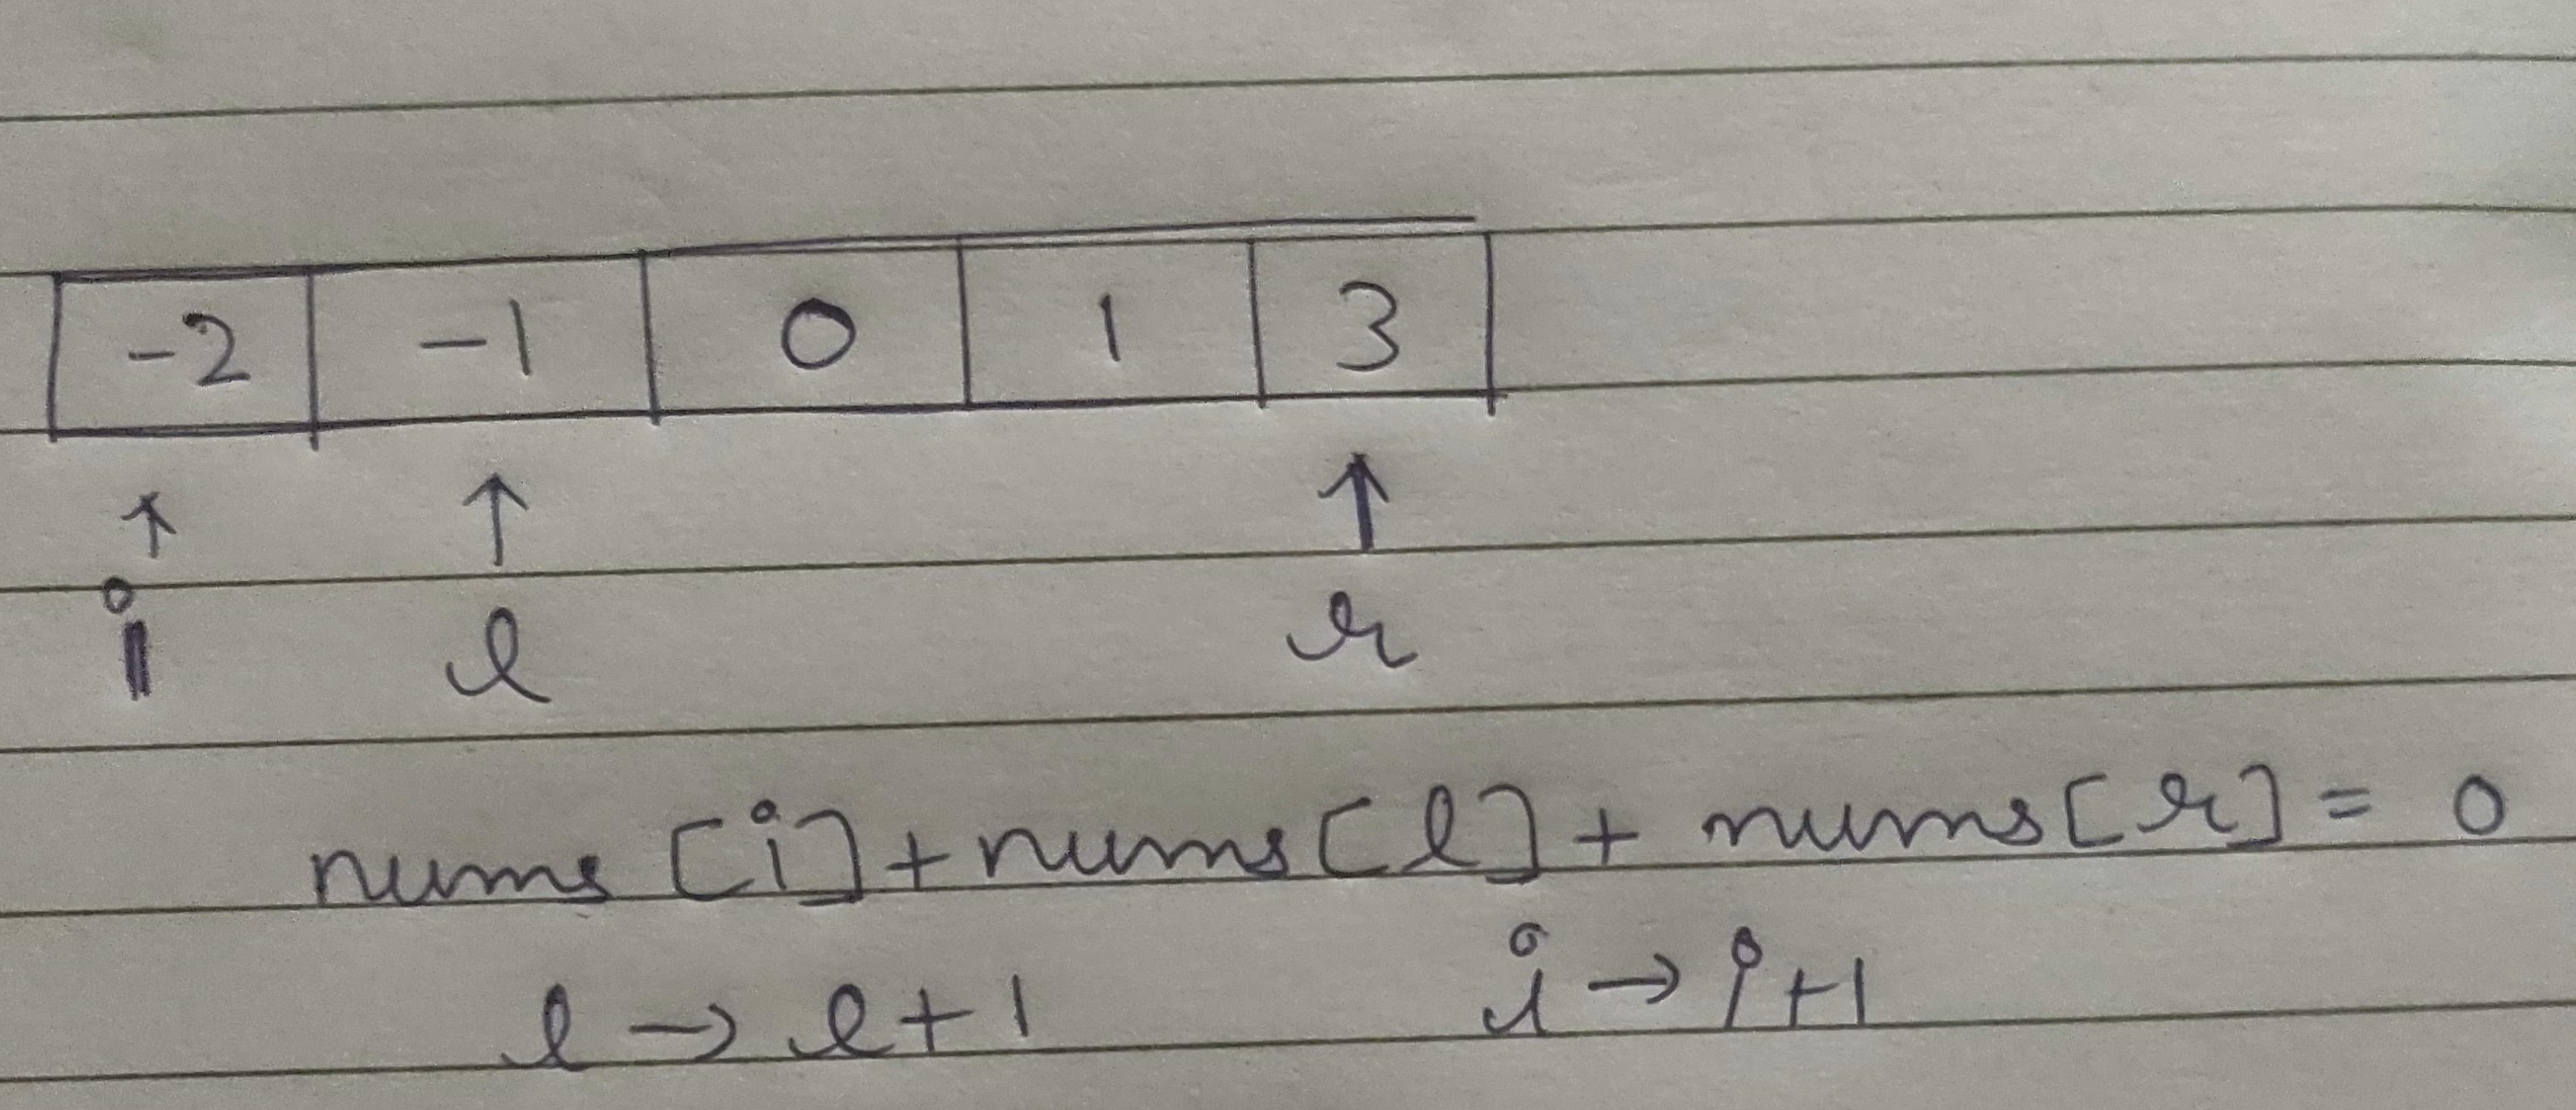 -2 -1 0 1 3
↑ ↑ ↑
i l r
nums [i] + nums [l] + nums [r] = 0
l → l+1 i → i+1